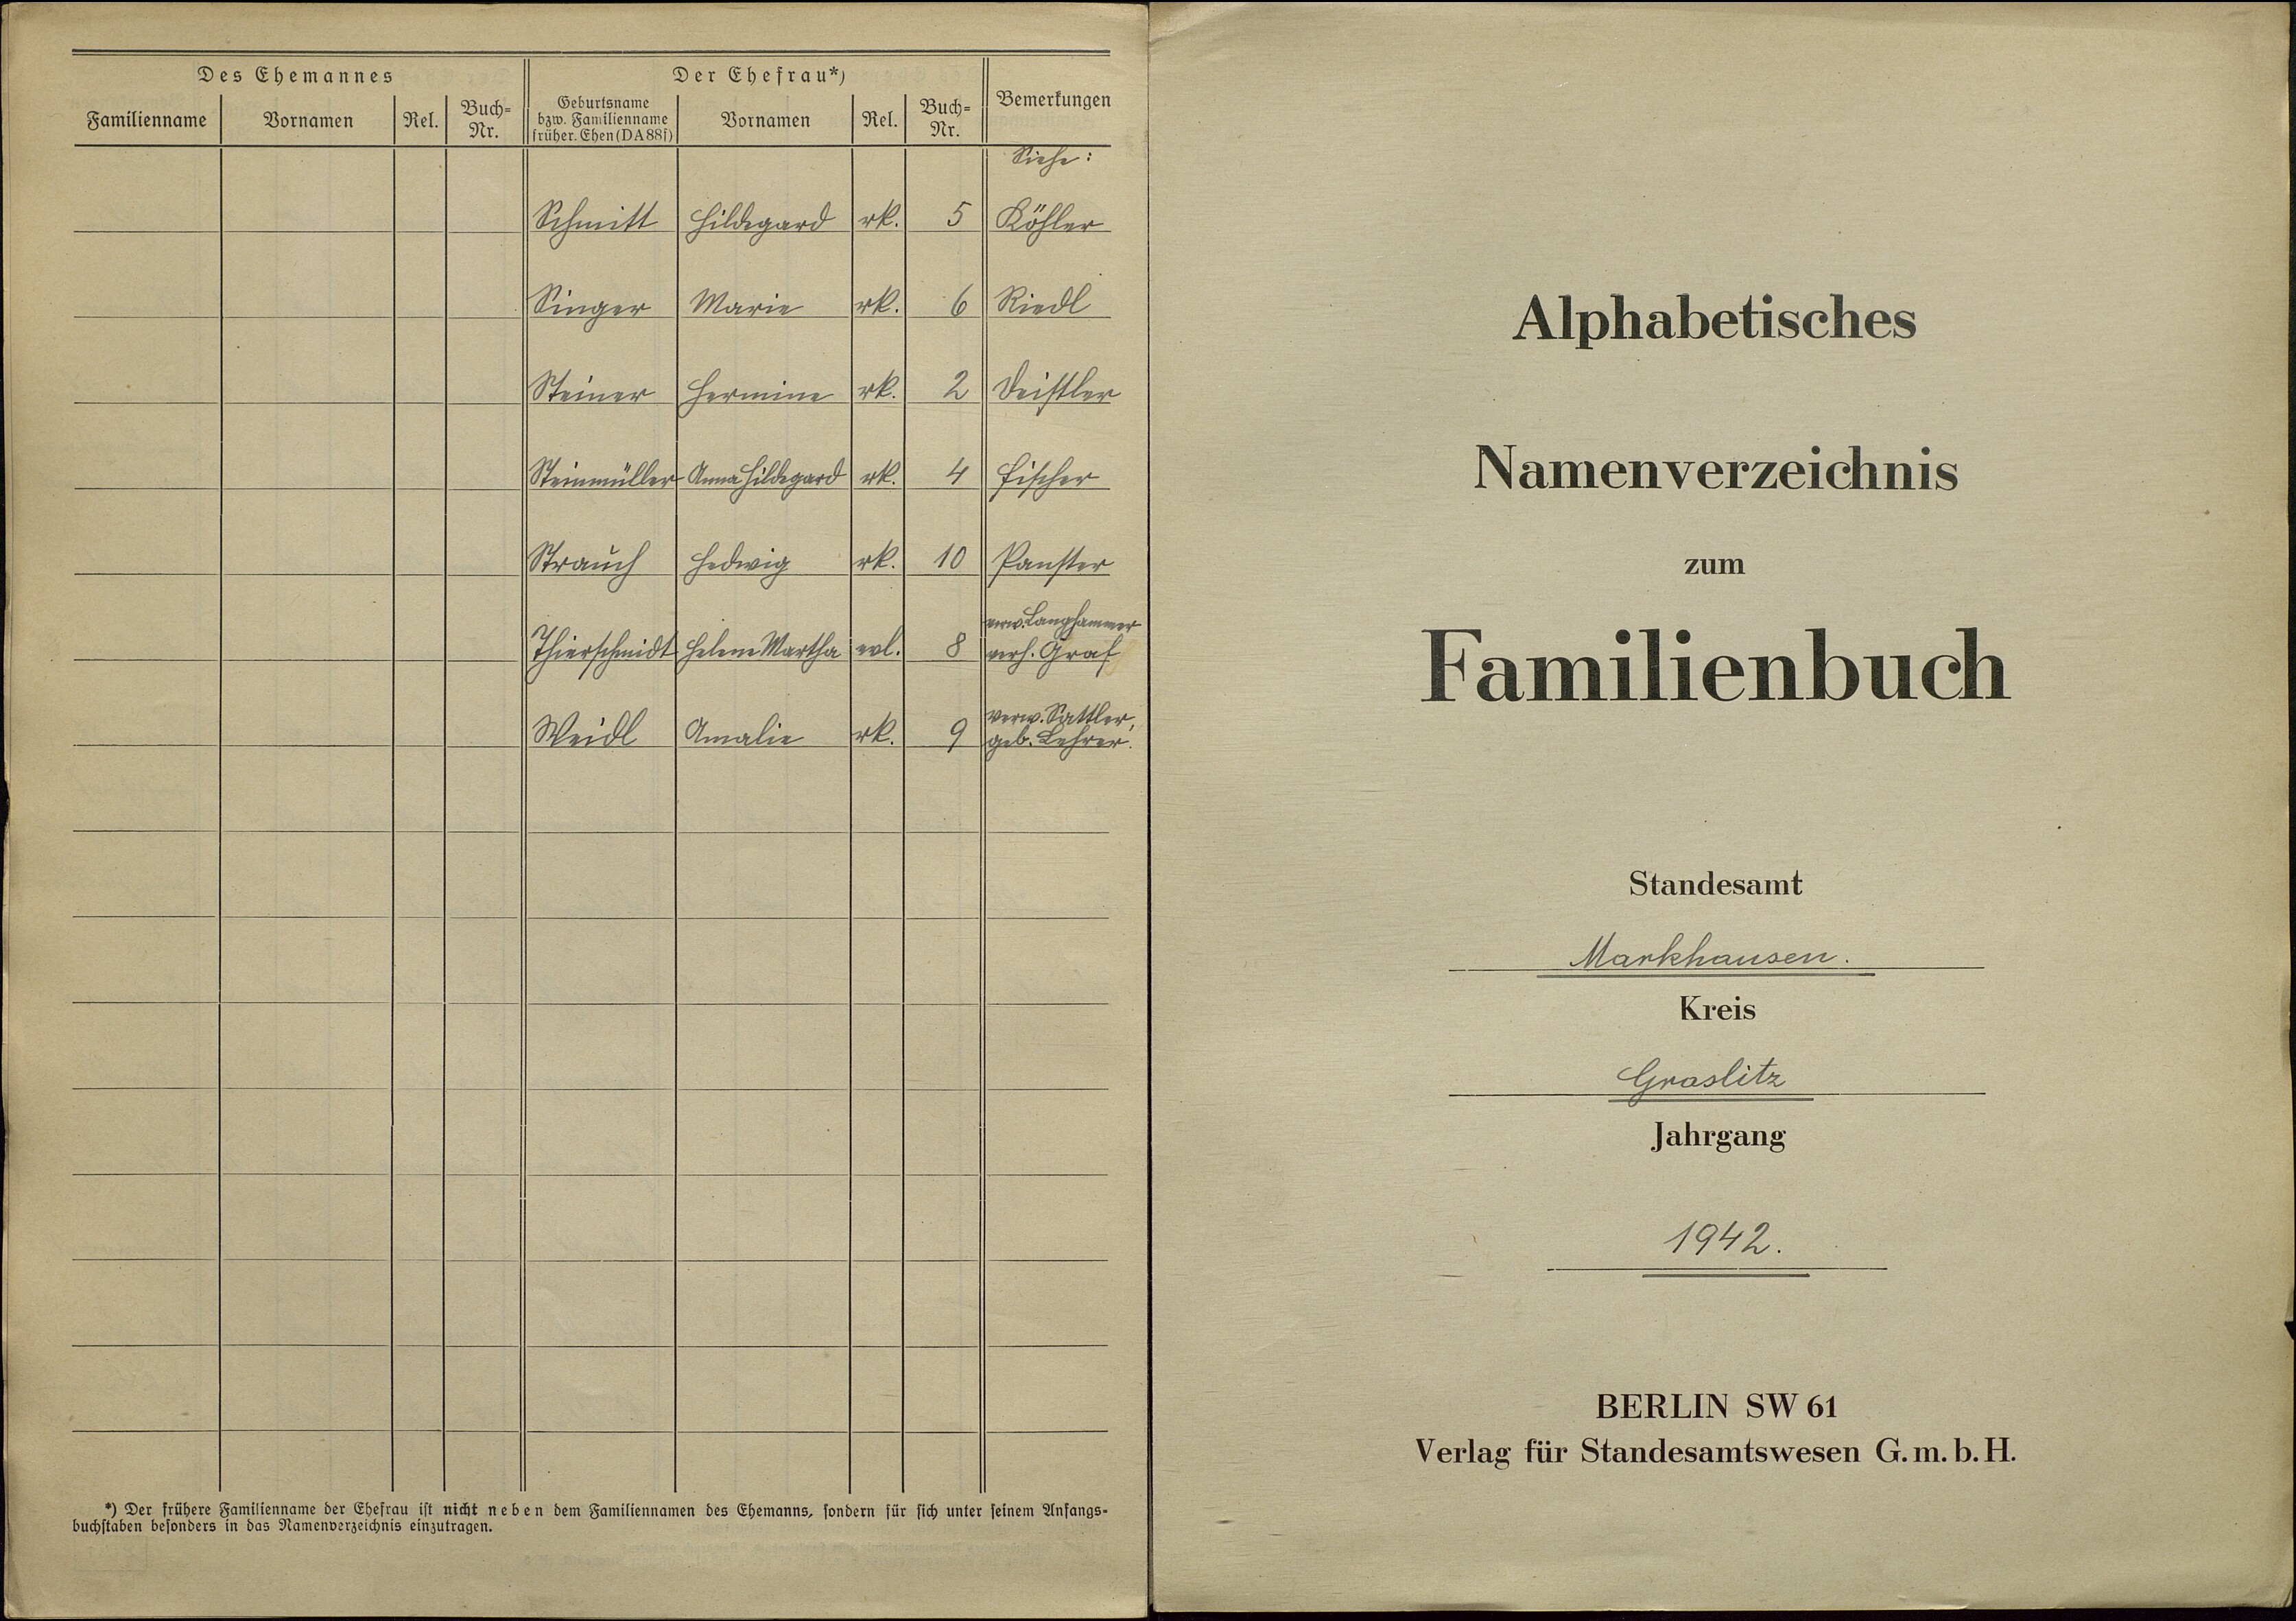 Des Ehemannes
Der Ehefrau*)
Familienname
Vornamen
Rel.
Buch=
Nr.
Geburtsname
bzw. Familienname
früher. Ehen (DA 88f)
Vornamen
Rel.
Buch=
Nr.
Bemerkungen
Siehe:
Schmitt Hildegard rk. 5 Köhler
Singer Marie rk. 6 Riedl
Steiner Hermine rk. 2 Deistler
Steinmüller Anna Hildegard rk. 4 Fischer
Strauch Hedwig rk. 10 Panster
verw. Langhammer
Thierschmidt Helene Martha evl. 8 verh. Graf
verw. Sattler,
Weidl Amalie rk. 9 geb. Lehrer.
*) Der frühere Familienname der Ehefrau ist nicht neben dem Familiennamen des Ehemanns, sondern für sich unter seinem Anfangs=
buchstaben besonders in das Namenverzeichnis einzutragen.
Alphabetisches
Namenverzeichnis
zum
Familienbuch
Standesamt
Markhausen.
Kreis
Graslitz
Jahrgang
1942.
BERLIN SW 61
Verlag für Standesamtswesen G.m.b.H.